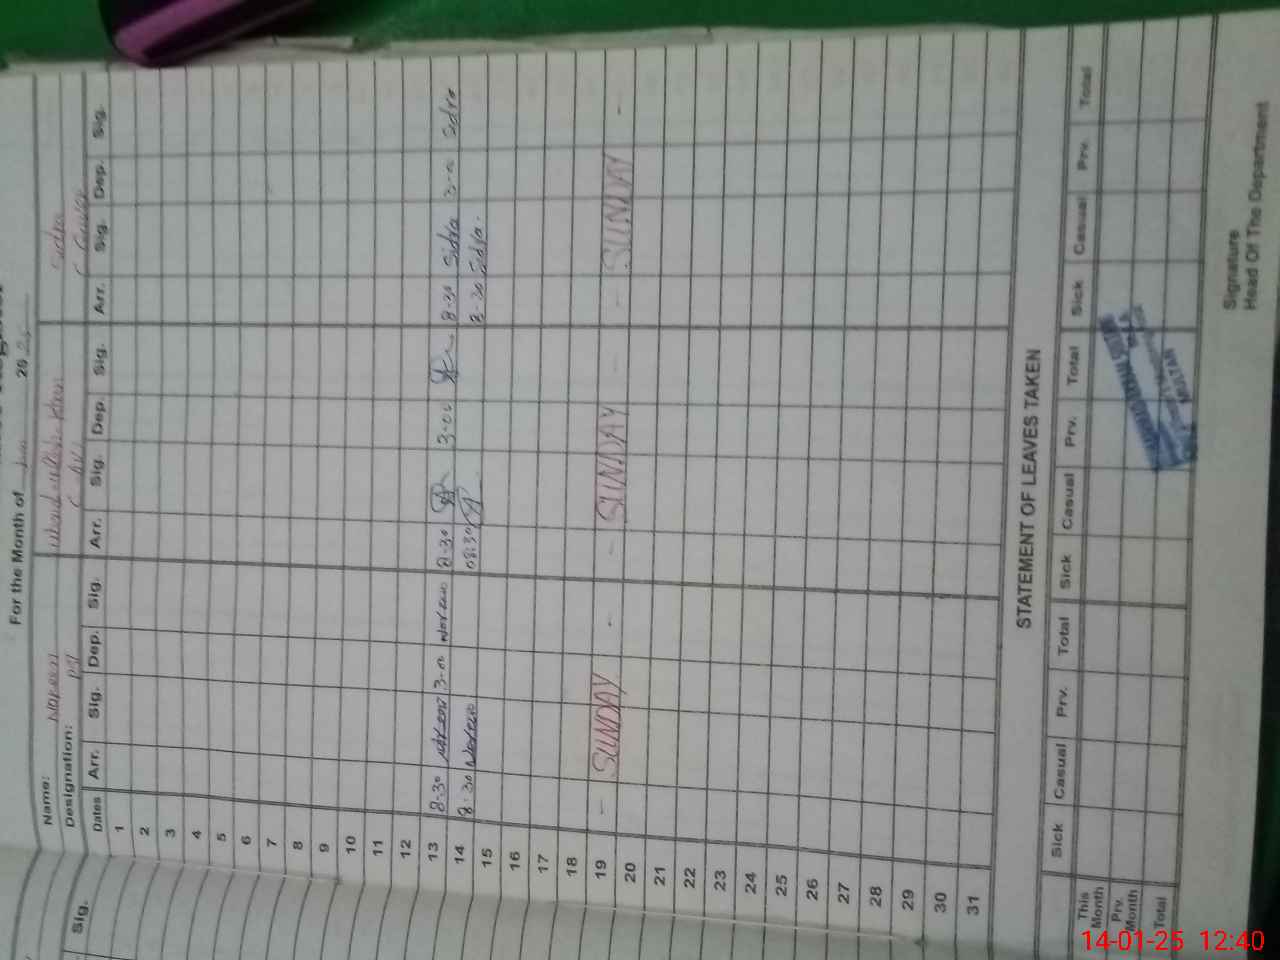 For the Month of Jan 2025
Name: Noreen Ubaid ullah Khan Sidra
Designation:
Dates Arr. Sig. Dep. Sig. Arr. Sig. Dep. Sig. Arr. Sig. Dep. Sig.
1
2
3
4
5
6
7
8
9
10
11
12
13 8-30 Noreen 3-00 Noreen 8-30 3-00 8-30 Sidra 3-00 Sidra
14 8-30 Noreen 08:30 8-30 Sidra.
15
16
17
18
19 - SUNDAY - - SUNDAY - - SUNDAY -
20
21
22
23
24
25
26
27
28
29
30
31
STATEMENT OF LEAVES TAKEN
Sick Casual Prv. Total Sick Casual Prv. Total Sick Casual Prv. Total
This Month
Prv. Month
Total
MULTAN
Signature
Head Of The Department
Sig.
14-01-25 12:40